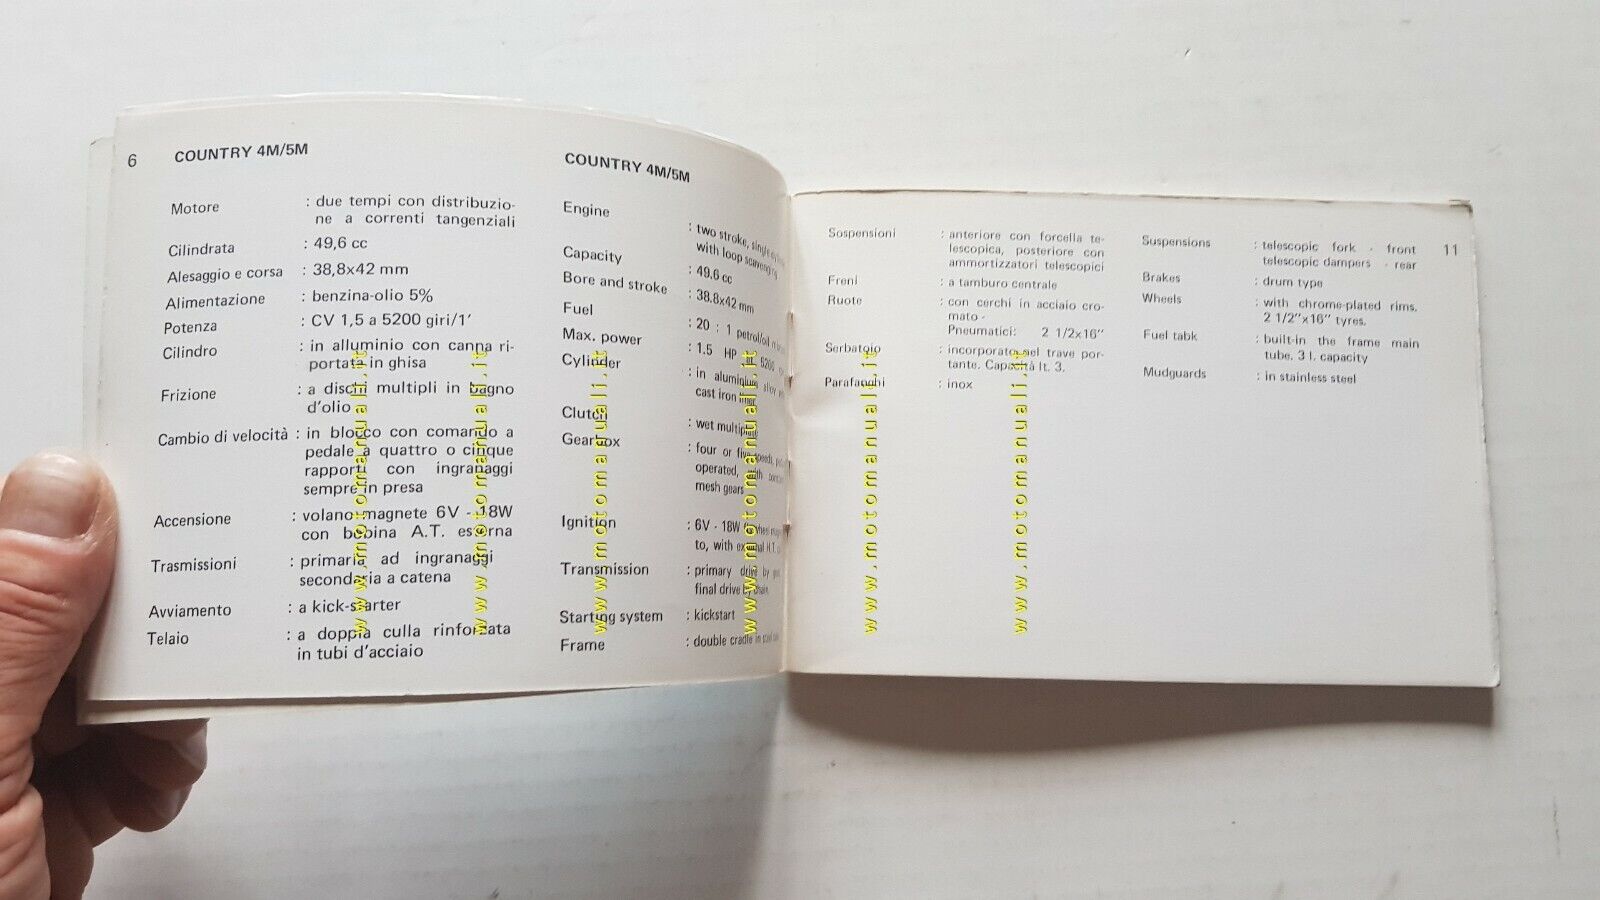 6
COUNTRY 4M/5M
Motore : due tempi con distribuzio-
ne a correnti tangenziali
Cilindrata : 49,6 cc
Alesaggio e corsa : 38,8x42 mm
Alimentazione : benzina-olio 5%
Potenza : CV 1,5 a 5200 giri/1'
Cilindro : in alluminio con canna ri-
portata in ghisa
Frizione : a dischi multipli in bagno
d'olio
Cambio di velocità : in blocco con comando a
pedale a quattro o cinque
rapporti con ingranaggi
sempre in presa
Accensione : volano magnete 6V - 18W
con bobina A.T. esterna
Trasmissioni : primaria ad ingranaggi
secondaria a catena
Avviamento : a kick-starter
Telaio : a doppia culla rinforzata
in tubi d'acciaio
COUNTRY 4M/5M
Engine : two stroke, single
with loop scavenging
Capacity : 49,6 cc
Bore and stroke : 38,8x42 mm
Fuel : 20 : 1 petrol/oil
Max. power : 1.5 HP 5200
Cylinder : in aluminium alloy
cast iron liner
Clutch : wet multiplate
Gearbox : four or five speeds,
operated, with
mesh gears
Ignition : 6V - 18W
to, with external H.T.
Transmission : primary drive by
final drive by chain
Starting system : kickstart
Frame : double cradle in
Sospensioni : anteriore con forcella te-
lescopica, posteriore con
ammortizzatori telescopici
Freni : a tamburo centrale
Ruote : con cerchi in acciaio cro-
mato -
Pneumatici: 2 1/2x16"
Serbatoio : incorporato nel trave por-
tante. Capacità lt. 3.
Parafanghi : inox
11
Suspensions : telescopic fork - front
telescopic dampers - rear
Brakes : drum type
Wheels : with chrome-plated rims.
2 1/2"x16" tyres.
Fuel tabk : built-in the frame main
tube. 3 l. capacity
Mudguards : in stainless steel
www.motomanuali.it
www.motomanuali.it
www.motomanuali.it
www.motomanuali.it
www.motomanuali.it
www.motomanuali.it